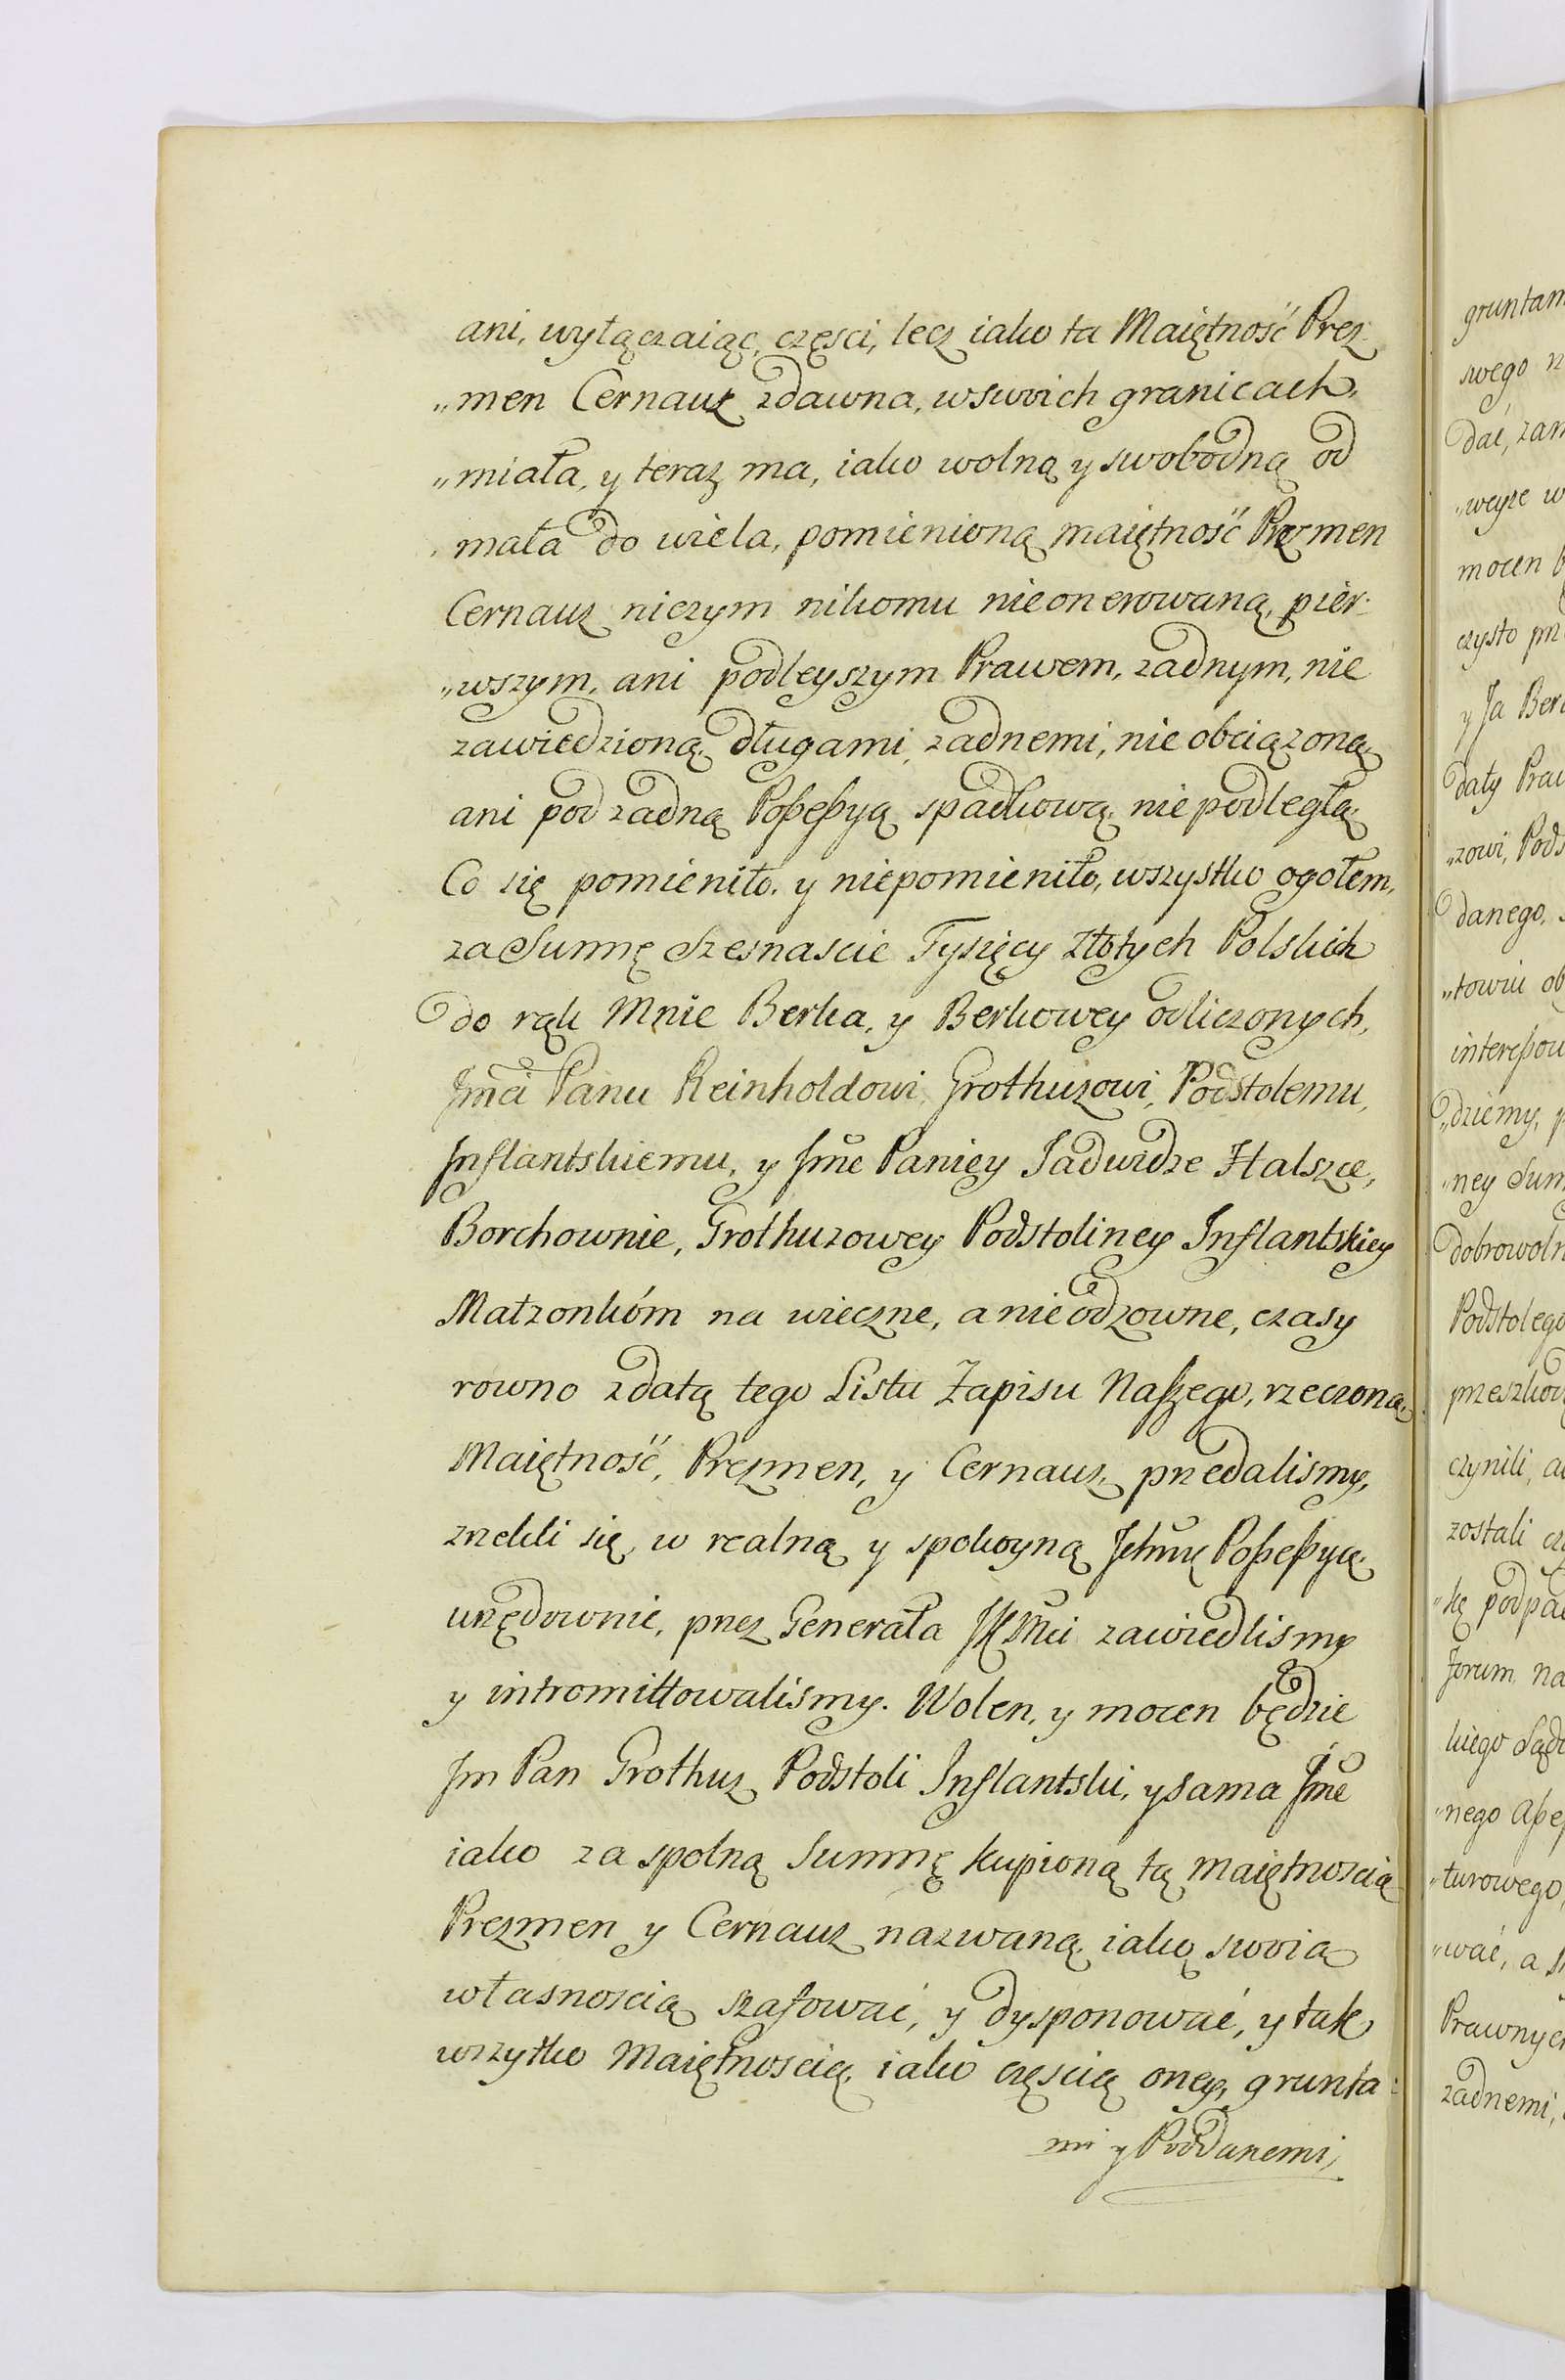 ani, wyłączaiąc, częsci, lecz iako ta Maiętność Prez-
„men Cernauz zdawna, wswoich granicach,
„miała, y teraz ma, iako wolną y swobodną od
mała do wiela, pomienioną maiętność Prezmen
Cernauz niczym nikomu nieonerowaną, pier-
„wszym, ani podleyszym Prawem, zadnym, nie
zawiedzioną, długami, zadnemi, nie obciązoną,
ani pod zadną Poßeßyą spadkową, nie podległą,
Co się pomieniło, y niepomieniło, wszystko ogołem,
za Summę Szesnascie Tysięcy Złotych Polskich
do rąk Mnie Berka, y Berkowey odliczonych,
Jmci Panu Reinholdowi Grothuzowi, Podstolemu,
Inflantskiemu, y Jme Paniey Jadwidze Halszce,
Borchownie, Grothuzowey Podstoliney Inflantskiey
Małzonkóm na wieczne, a nieodzowne, czasy
rowno zdatą tego Listu Zapisu Naßzego, rzeczoną,
Maiętność, Prezmen, y Cernauz, przedalismy,
zrzekli się, w realną y spokoyną Poßeßyą,
urzędownie, przez Generała JKMci zawiedlismy
y intromittowalismy. Wolen, y mocen będzie
Jm Pan Grothuz Podstoli Inflantski, y sama Jme
iako za spolną Summę kupioną tą maiętnoscią
Prezmen y Cernauz nazwaną, iako swoią
własnoscią szafować, y dysponować, y tak
wszytko Maiętnoscią, iako częscią oney, grunta-
mi y Poddanemi,
gruntam
swego n
dać, zam
„weyze w
mocen b
czysto prz
y Ja Ber
daty Praw
„zowi, Pods
danego,
„towiu ob
intereßow
„dziemy, p
„ney Sum
dobrowoln
Podstolego
przeszkod
czynili, a
zostali cz
„kę podpa
Forum, na
kiego Sądu
„nego Aße
„turowego,
„wać, a
Prawnych
zadnemi,